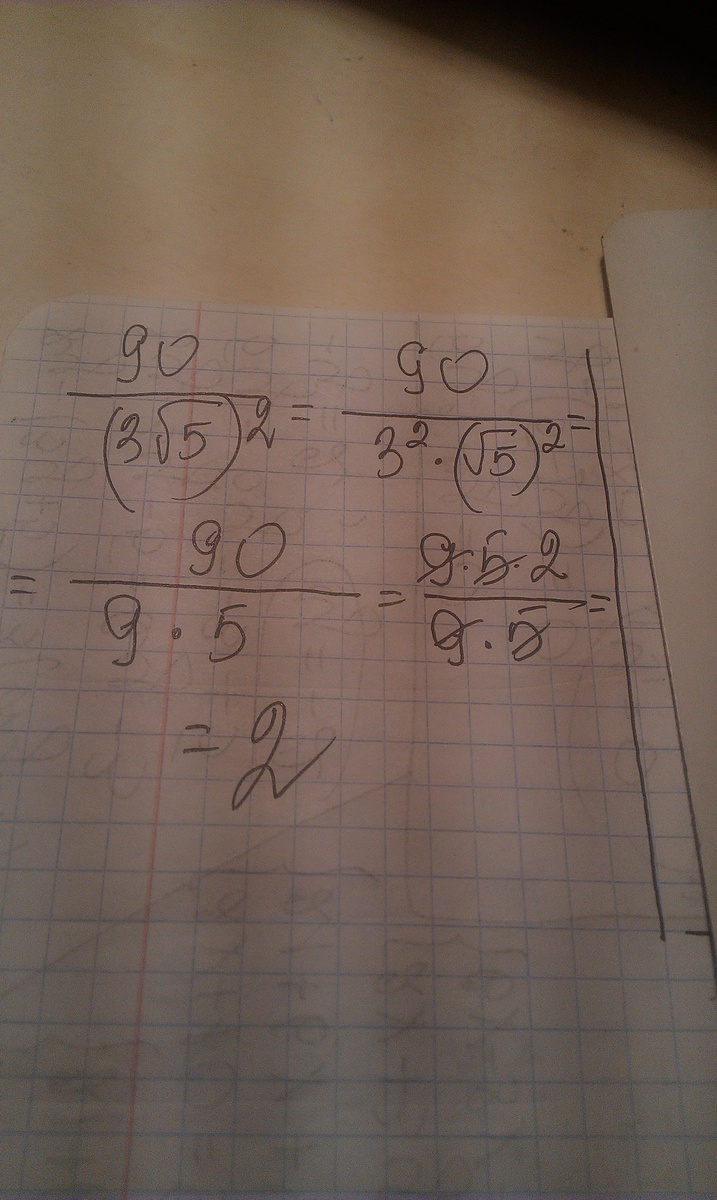 90/(3√5)² = 90/3²·(√5)² =
= 90/9·5 = 9·5·2/9·5 =
= 2